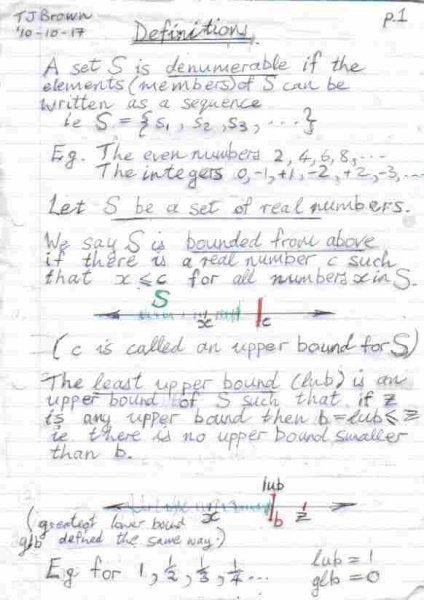 TJBrown
'10-10-17
p.1
Definitions
A set S is denumerable if the
elements (members) of S can be
written as a sequence
ie S = {s₁, s₂, s₃, ...}
Eg. The even numbers 2, 4, 6, 8, ...
The integers 0, -1, +1, -2, +2, -3, ...
Let S be a set of real numbers.
We say S is bounded from above
if there is a real number c such
that x ≤ c for all numbers x in S.
S
x c
(c is called an upper bound for S)
The least upper bound (lub) is an
upper bound of S such that if z
is any upper bound then b = lub ≤ z
ie there is no upper bound smaller
than b.
lub
x b z
(greatest lower bound
glb defined the same way.)
Eg for 1, 1/2, 1/3, 1/4 ...
lub = 1
glb = 0